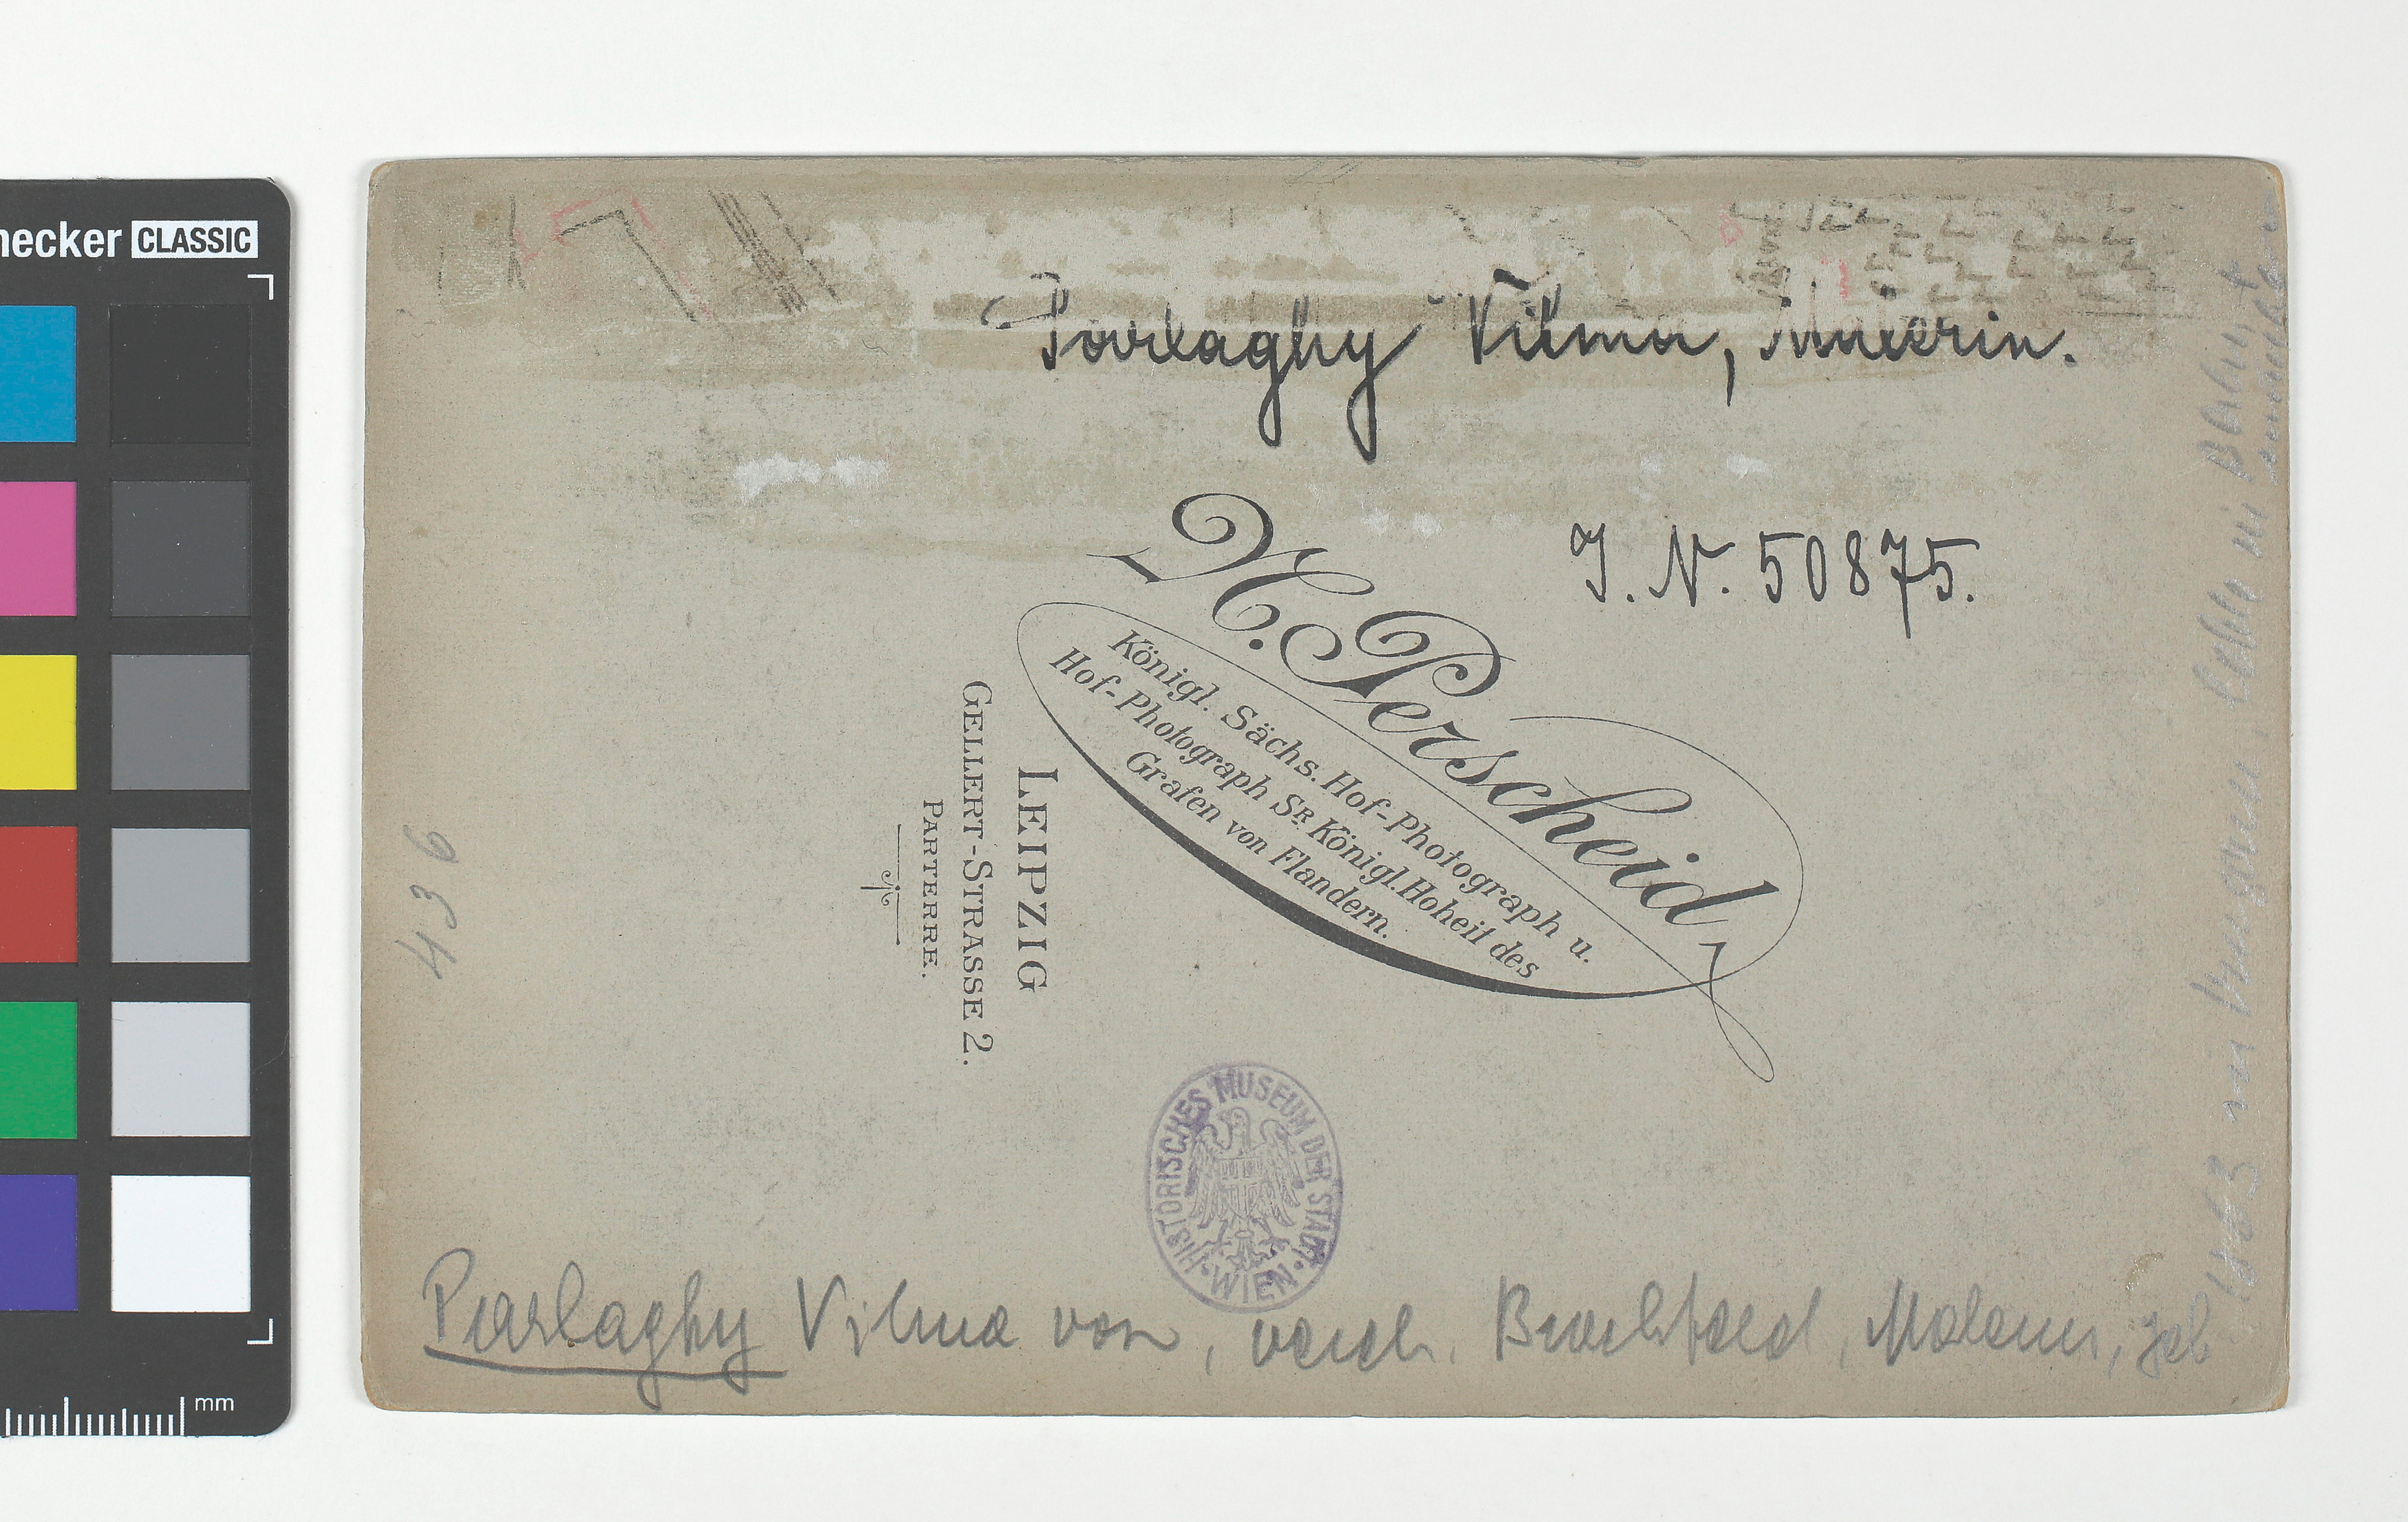 necker CLASSIC
Parlaghy Vilma, Malerin.
J. N. 50875.
N. Perscheid
Königl. Sächs. Hof-Photograph u.
Hof-Photograph Sr. Königl. Hoheit des
Grafen von Flandern.
LEIPZIG
GELLERT-STRASSE 2.
PARTERRE.
436
HISTORISCHES MUSEUM DER STADT WIEN
Parlaghy Vilma von, Malerin, geb
1863 in lebte in Berlin
mm